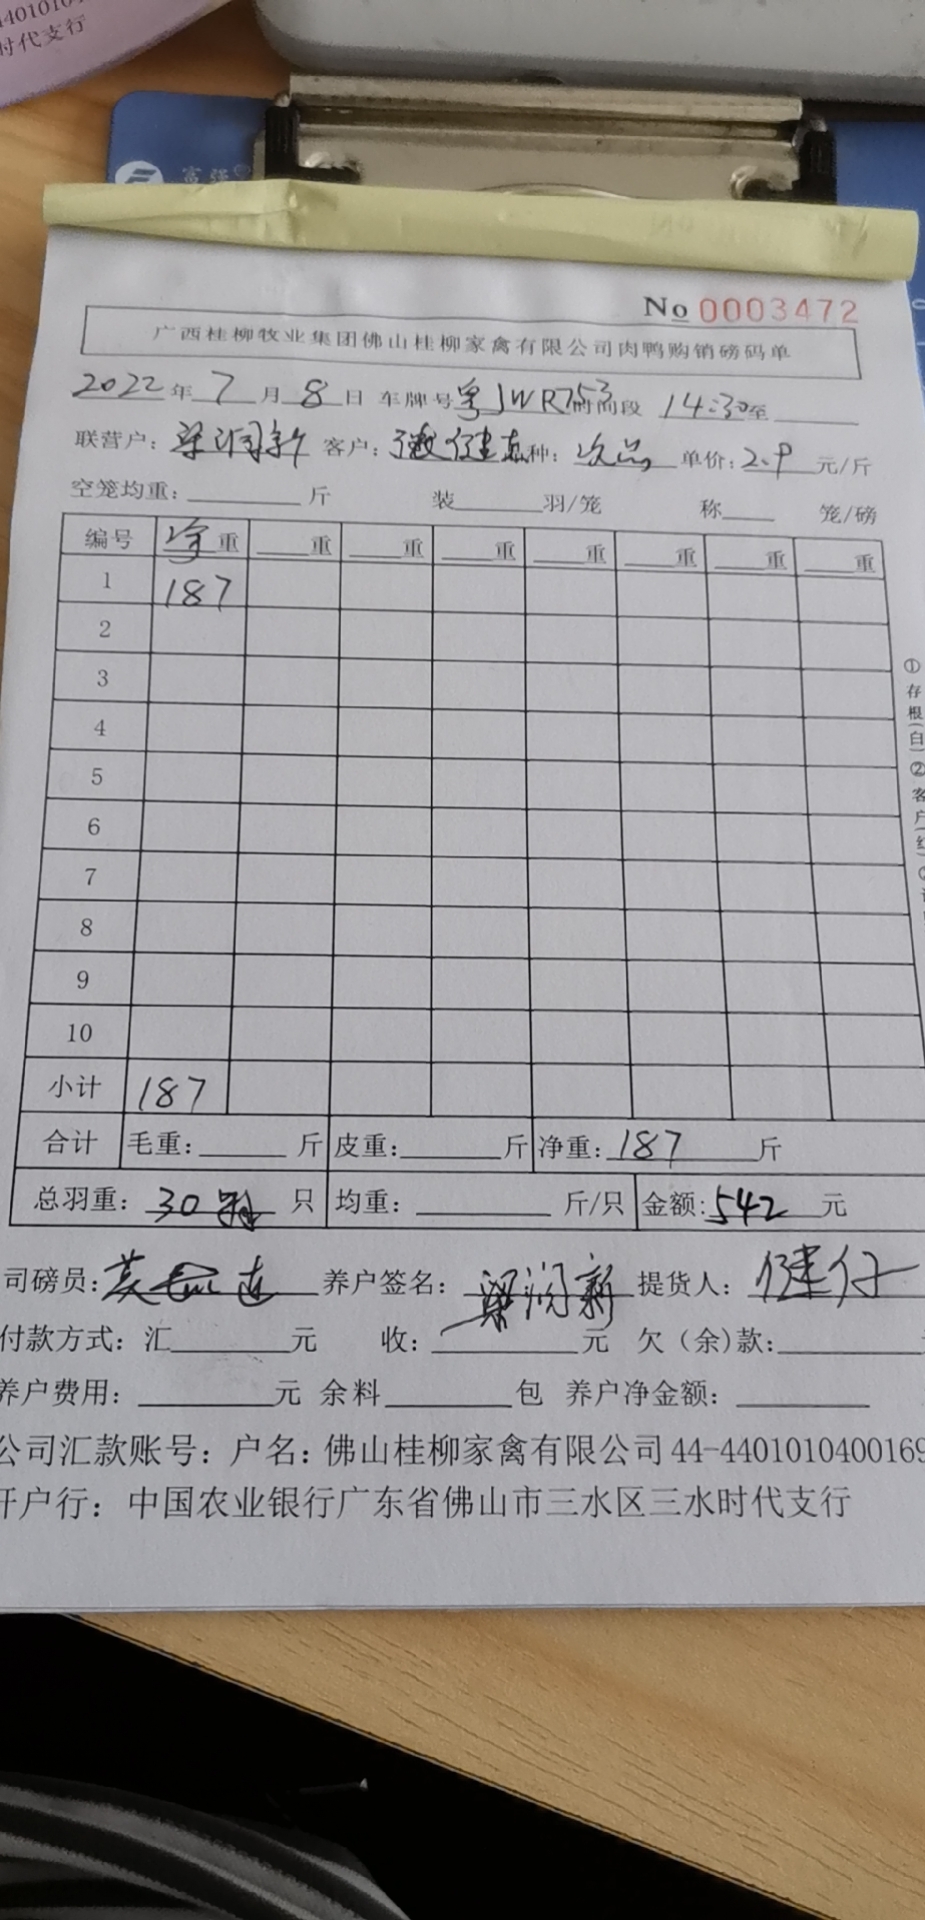 440101040
时代支行
富强
No 0003472
广西桂柳牧业集团佛山桂柳家禽有限公司肉鸭购销磅码单
2022年 7 月 8 日 车牌号 粤JWR753 时间段 14:30至
联营户: 梁润新 客户: 健 种: 次品 单价: 2.9 元/斤
空笼均重: 斤 装 羽/笼 称 笼/磅
编号 净重 重 重 重 重 重 重 重
1 187
2
3
4
5
6
7
8
9
10
小计 187
合计 毛重: 斤 皮重: 斤 净重: 187 斤
总羽重: 30 只 均重: 斤/只 金额: 542 元
司磅员: 养户签名: 梁润新 提货人: 健仔
付款方式: 汇 元 收: 元 欠(余)款:
养户费用: 元 余料 包 养户净金额:
公司汇款账号: 户名: 佛山桂柳家禽有限公司 44-4401010400169
开户行: 中国农业银行广东省佛山市三水区三水时代支行
①存根(白)②客户(红)